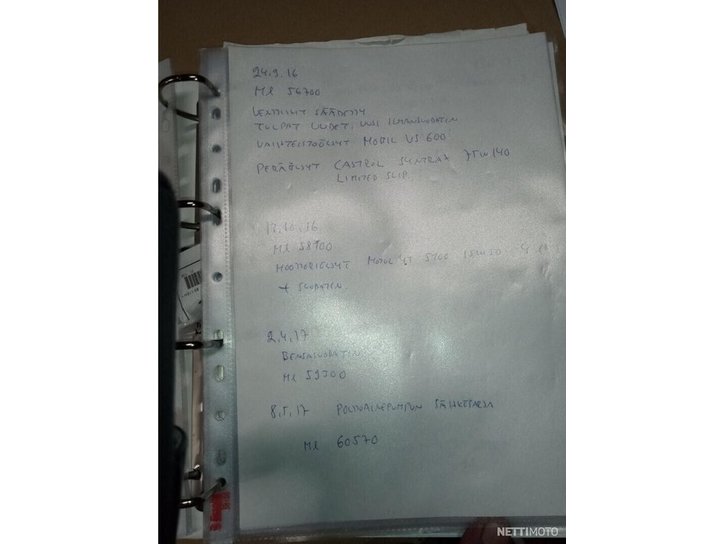 24.9.16
ML 56700
VENTTIILIT SÄÄDETTY
TULPAT UUDET, UUSI ILMANSUODATIN
VAIHTEISTOÖLJYT MOBIL VS 600
PERÄÖLJYT CASTROL SYNTRAX 75W140
LIMITED SLIP
13.10.16
ML 58900
MOOTTORIÖLJYT MOTUL 5100 15W50
+ SUODATIN
2.4.17
BENSASUODATIN
ML 59300
8.5.17 POLTTOAINEPUMPUN SÄHKÖSARJA
ML 60570
NETTIMOTO